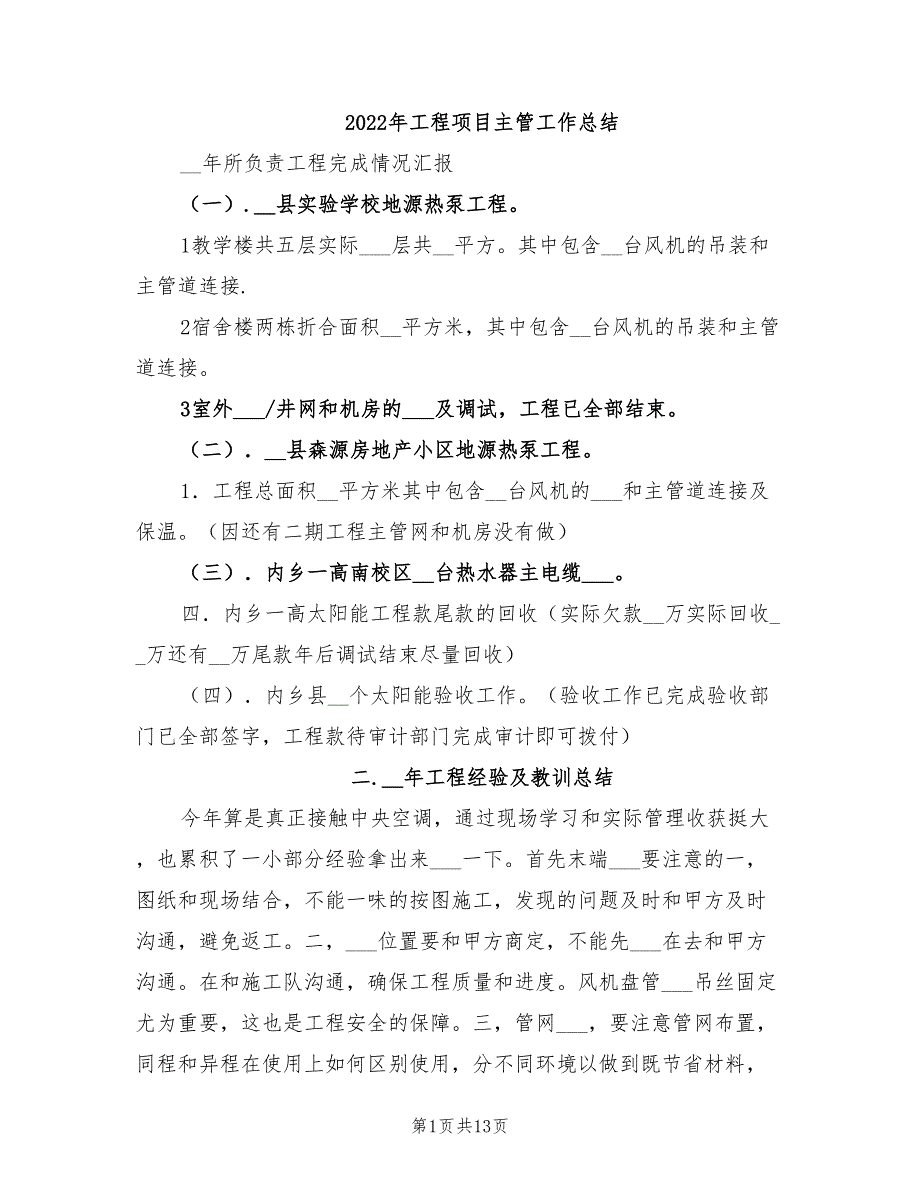 2022年工程项目主管工作总结
__年所负责工程完成情况汇报
（一）.__县实验学校地源热泵工程。
1教学楼共五层实际___层共__平方。其中包含__台风机的吊装和
主管道连接.
2宿舍楼两栋折合面积__平方米，其中包含__台风机的吊装和主管
道连接。
3室外___/井网和机房的___及调试，工程已全部结束。
（二）．__县森源房地产小区地源热泵工程。
1．工程总面积__平方米其中包含__台风机的___和主管道连接及
保温。（因还有二期工程主管网和机房没有做）
（三）．内乡一高南校区__台热水器主电缆___。
四．内乡一高太阳能工程款尾款的回收（实际欠款__万实际回收_
_万还有__万尾款年后调试结束尽量回收）
（四）．内乡县__个太阳能验收工作。（验收工作已完成验收部
门已全部签字，工程款待审计部门完成审计即可拨付）
二.__年工程经验及教训总结
今年算是真正接触中央空调，通过现场学习和实际管理收获挺大
，也累积了一小部分经验拿出来___一下。首先末端___要注意的一，
图纸和现场结合，不能一味的按图施工，发现的问题及时和甲方及时
沟通，避免返工。二，___位置要和甲方商定，不能先___在去和甲方
沟通。在和施工队沟通，确保工程质量和进度。风机盘管___吊丝固定
尤为重要，这也是工程安全的保障。三，管网___，要注意管网布置，
同程和异程在使用上如何区别使用，分不同环境以做到既节省材料，
第1页共13页